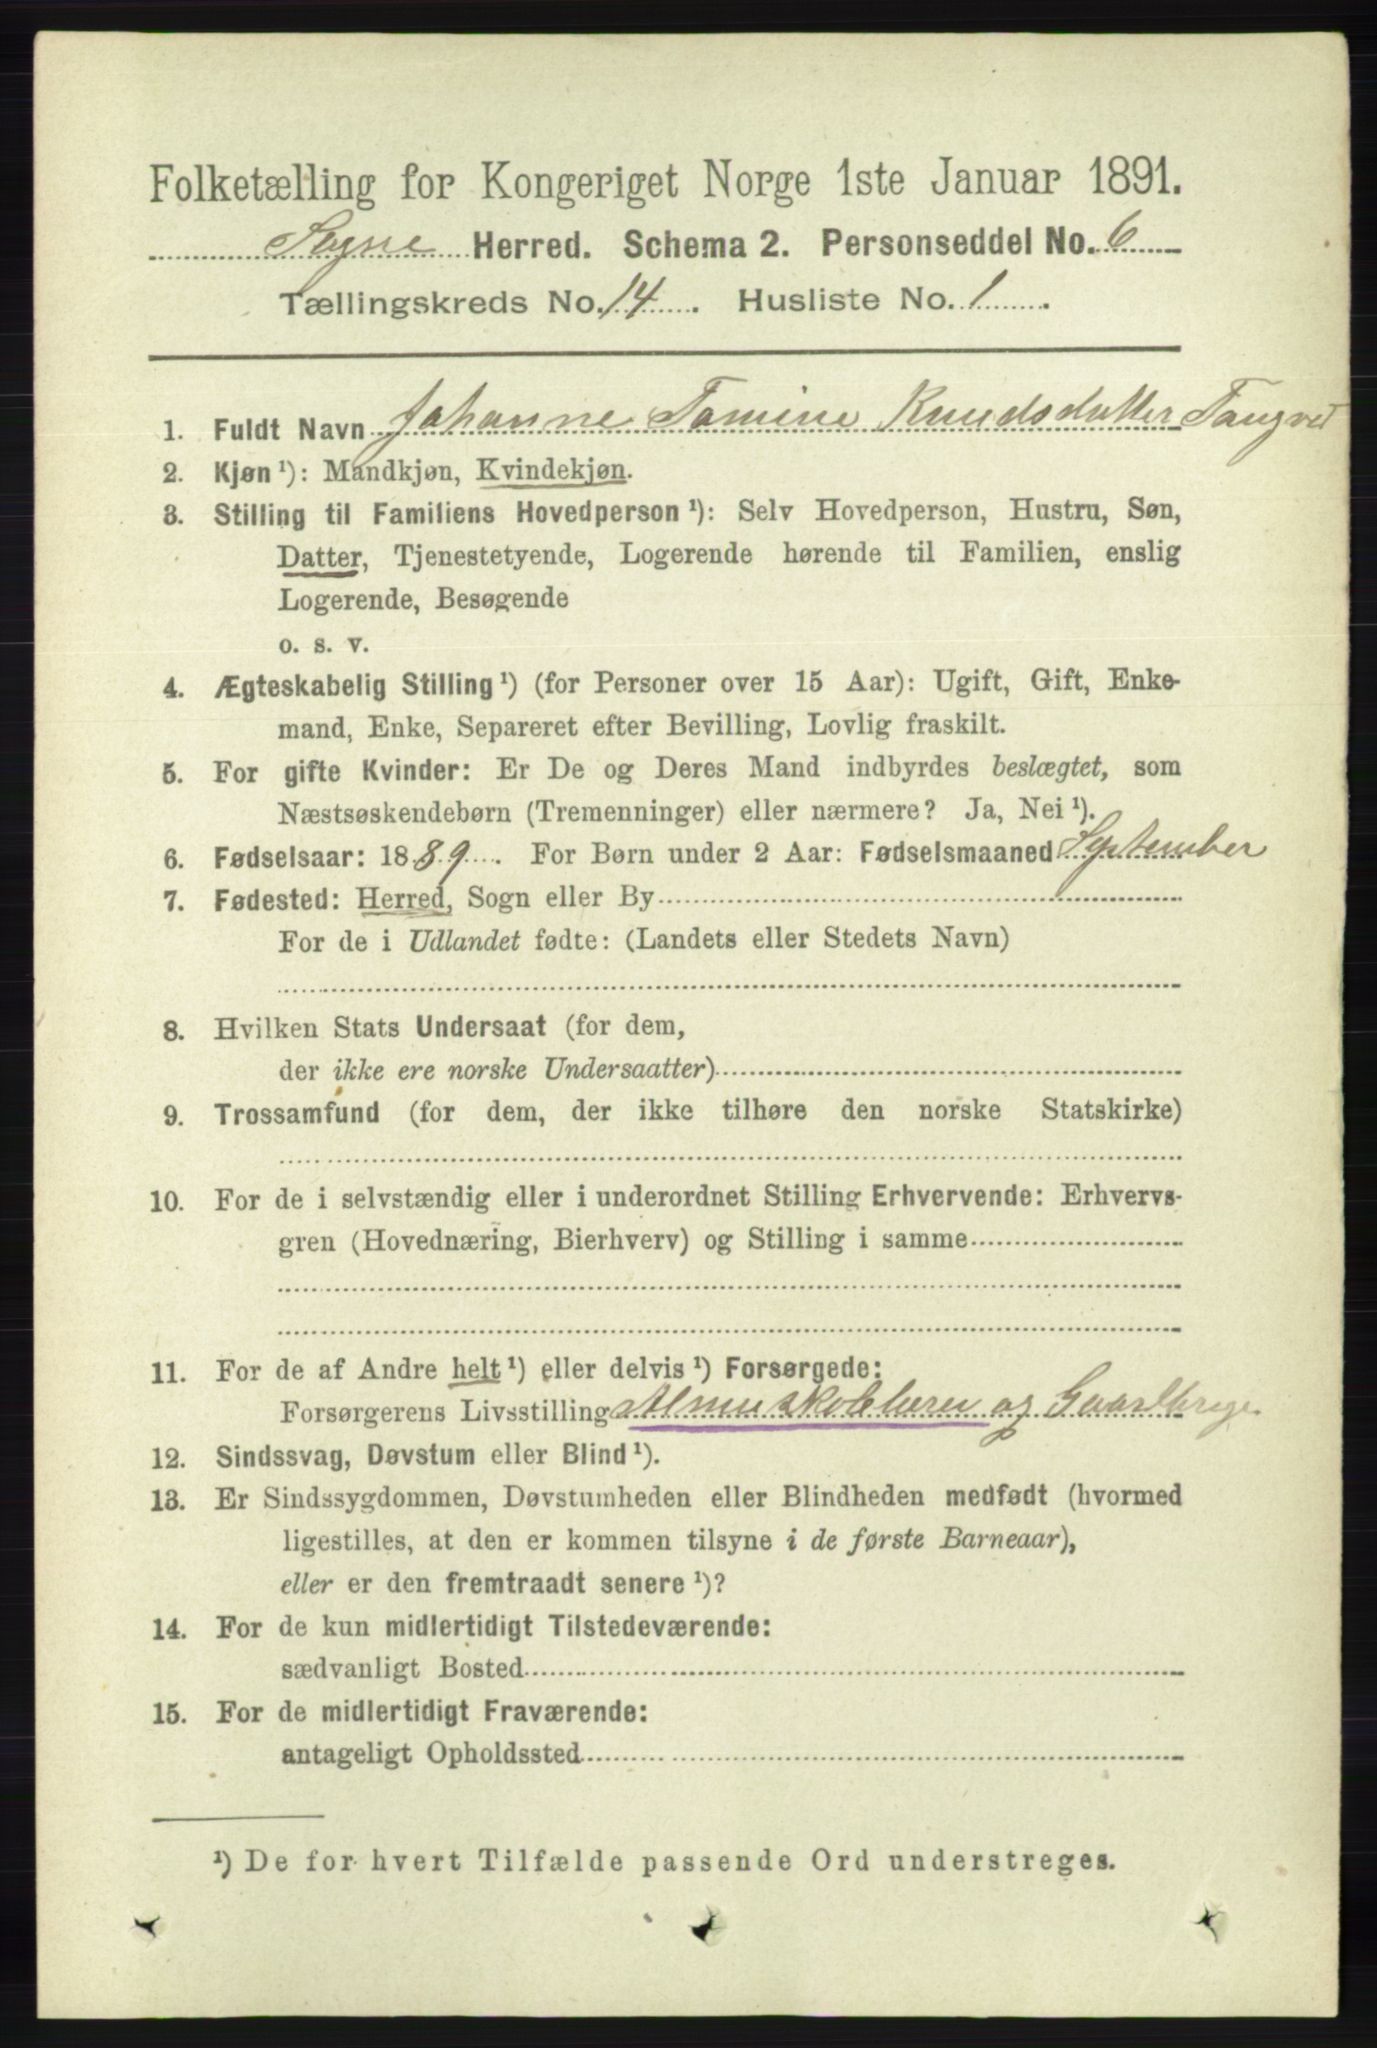 Folketælling for Kongeriget Norge 1ste Januar 1891.
Søgne Herred. Schema 2. Personseddel No. 6
Tællingskreds No. 14. Husliste No. 1.
1. Fuldt Navn Johanne Tomine Knudsdatter Tangvei
2. Kjøn ¹): Mandkjøn, Kvindekjøn.
3. Stilling til Familiens Hovedperson ¹): Selv Hovedperson, Hustru, Søn,
Datter, Tjenestetyende, Logerende hørende til Familien, enslig
Logerende, Besøgende
o. s. v.
4. Ægteskabelig Stilling ¹) (for Personer over 15 Aar): Ugift, Gift, Enke-
mand, Enke, Separeret efter Bevilling, Lovlig fraskilt.
5. For gifte Kvinder: Er De og Deres Mand indbyrdes beslægtet, som
Næstsøskendebørn (Tremenninger) eller nærmere? Ja, Nei ¹).
6. Fødselsaar: 1889. For Børn under 2 Aar: Fødselsmaaned September
7. Fødested: Herred, Sogn eller By
For de i Udlandet fødte: (Landets eller Stedets Navn)
8. Hvilken Stats Undersaat (for dem,
der ikke ere norske Undersaatter)
9. Trossamfund (for dem, der ikke tilhøre den norske Statskirke)
10. For de i selvstændig eller i underordnet Stilling Erhvervende: Erhvervs-
gren (Hovednæring, Bierhverv) og Stilling i samme
11. For de af Andre helt ¹) eller delvis ¹) Forsørgede:
Forsørgerens Livsstilling Almueskolelærer og Gaardbruger
12. Sindssvag, Døvstum eller Blind ¹).
13. Er Sindssygdommen, Døvstumheden eller Blindheden medfødt (hvormed
ligestilles, at den er kommen tilsyne i de første Barneaar),
eller er den fremtraadt senere ¹)?
14. For de kun midlertidigt Tilstedeværende:
sædvanligt Bosted
15. For de midlertidigt Fraværende:
antageligt Opholdssted
¹) De for hvert Tilfælde passende Ord understreges.